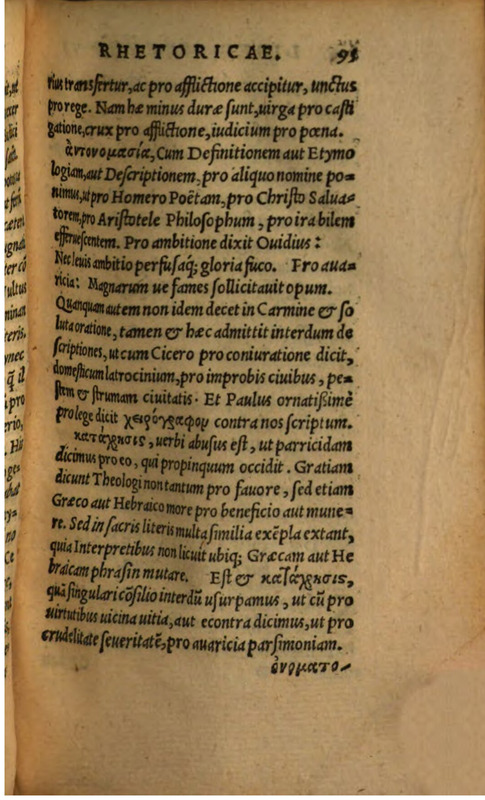 RHETORICAE. 95
rius transfertur, ac pro afflictione accipitur, unctus
pro rege. Nam hæ minus duræ sunt, uirga pro casti
gatione, crux pro afflictione, iudicium pro pœna.
ἀντονομασία, Cum Definitionem aut Etymo
logiam, aut Descriptionem, pro aliquo nomine po-
nimus, ut pro Homero Poëtam, pro Christo Salua-
torem, pro Aristotele Philosophum, pro ira bilem
efferuescentem. Pro ambitione dixit Ouidius:
Nec leuis ambitio perfusaq; gloria fuco. Pro aua-
ricia: Magnarum ue fames sollicitauit opum.
Quanquam autem non idem decet in Carmine & so
luta oratione, tamen & hæc admittit interdum de
scriptiones, ut cum Cicero pro coniuratione dicit,
domesticum latrocinium, pro improbis ciuibus, pe-
stem & strumam ciuitatis. Et Paulus ornatißimè
pro lege dicit χειρόγραφον contra nos scriptum.
κατάχρησις, uerbi abusus est, ut parricidam
dicimus pro eo, qui propinquum occidit. Gratiam
dicunt Theologi non tantum pro fauore, sed etiam
Græco aut Hebraico more pro beneficio aut mune-
re. Sed in sacris literis multa similia exēpla extant,
quia Interpretibus non licuit ubiq; Græcam aut He
braicam phrasin mutare. Est & κατάχρησις,
quā singulari cōsilio interdū usurpamus, ut cū pro
uirtutibus uicina uitia, aut econtra dicimus, ut pro
crudelitate seueritatē, pro auaricia parsimoniam.
ὀνοματο-